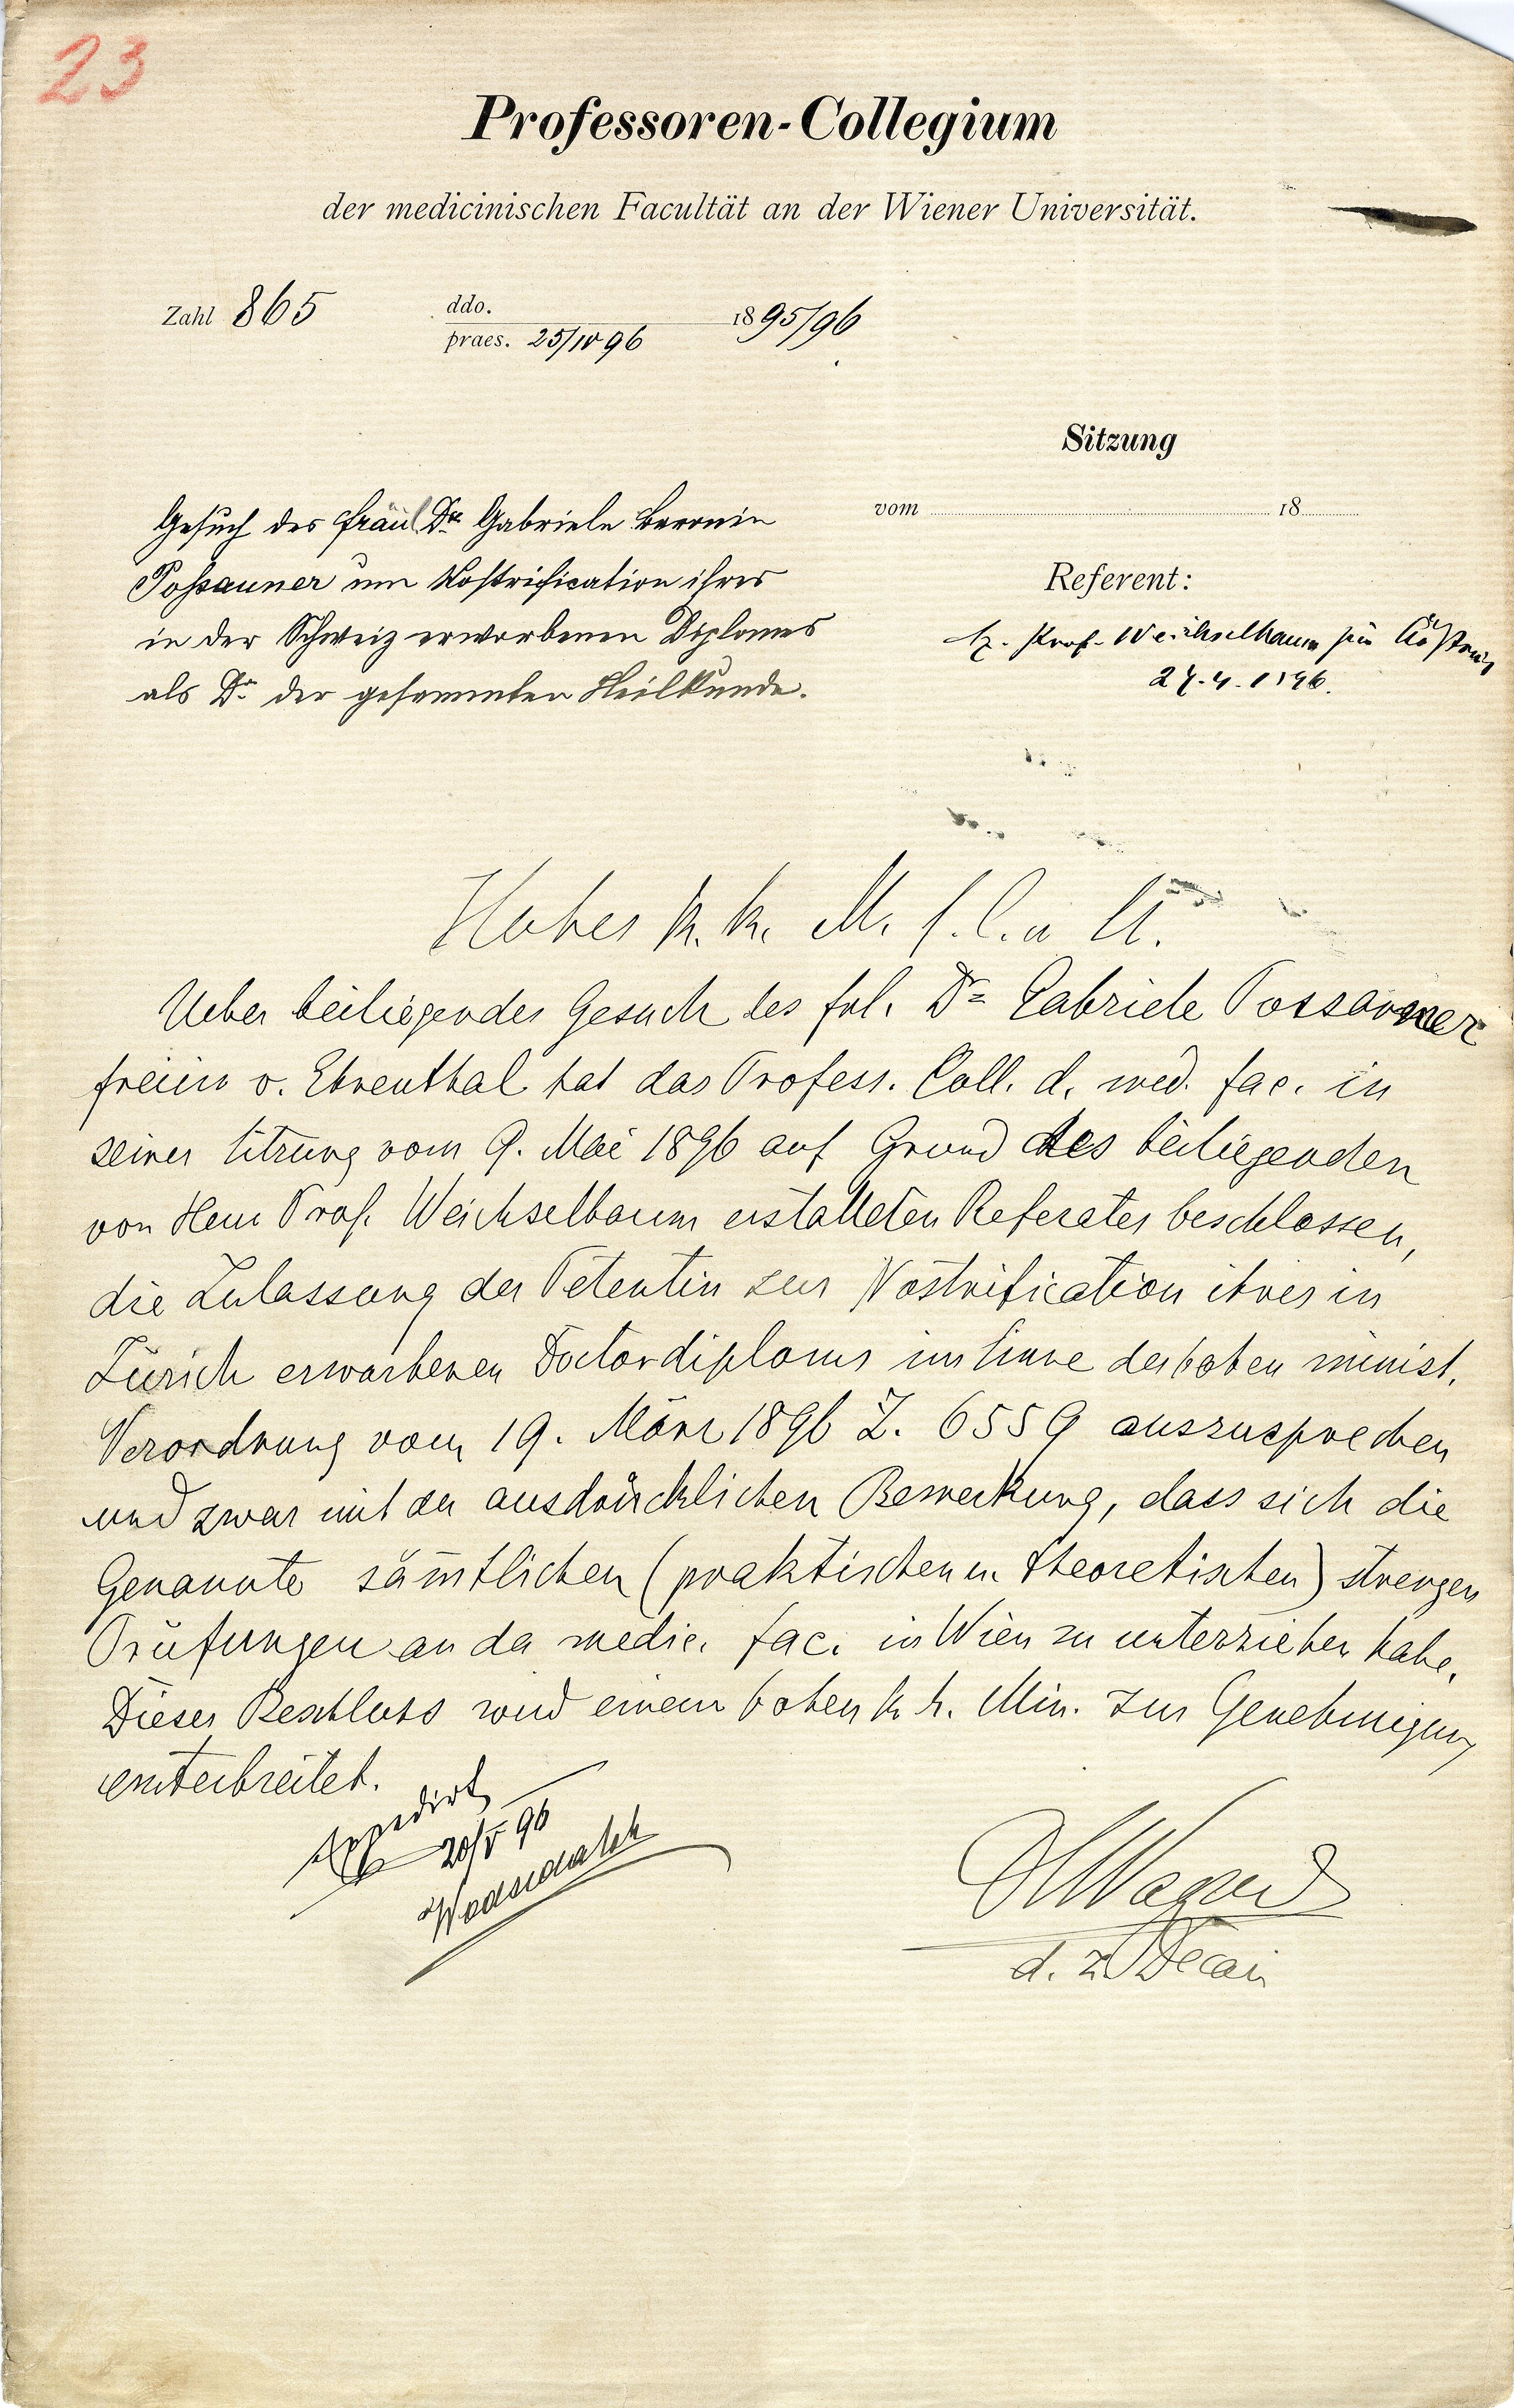 23
Professoren-Collegium
der medicinischen Facultät an der Wiener Universität.
Zahl 865
ddo.
praes. 25/IV 96
1895/96
Sitzung
vom 18
Gesuch des Fräul. Dr. Gabriele Baronin
Possanner um Nostrification ihres
in der Schweiz erworbenen Diploms
als Dr. der gesammten Heilkunde.
Referent:
H. Prof. Weichselbaum
27.4.1896.
Hohes k. k. M. f. C. u U.
Ueber beiliegendes Gesuch des Frl. Dr. Gabriele Possanner
Freiin v. Ehrenthal hat das Profess. Coll. d. med. Fac. in
seiner Sitzung vom 9. Mai 1896 auf Grund des beiliegenden
von Herrn Prof. Weichselbaum erstatteten Referates beschlossen,
die Zulassung der Petentin zur Nostrification ihres in
Zürich erworbenen Doctordiploms im Sinne der hohen minist.
Verordnung vom 19. März 1896 Z. 6559 auszusprechen
und zwar mit der ausdrücklichen Bemerkung, dass sich die
Genannte sämmtlichen (praktischen u. theoretischen) strengen
Prüfungen an der medic. Fac. in Wien zu unterziehen habe.
Dieser Beschluss wird einem hohen k. k. Min. zur Genehmigung
unterbreitet.
Expedirt
20/V 96
d. z. Decan